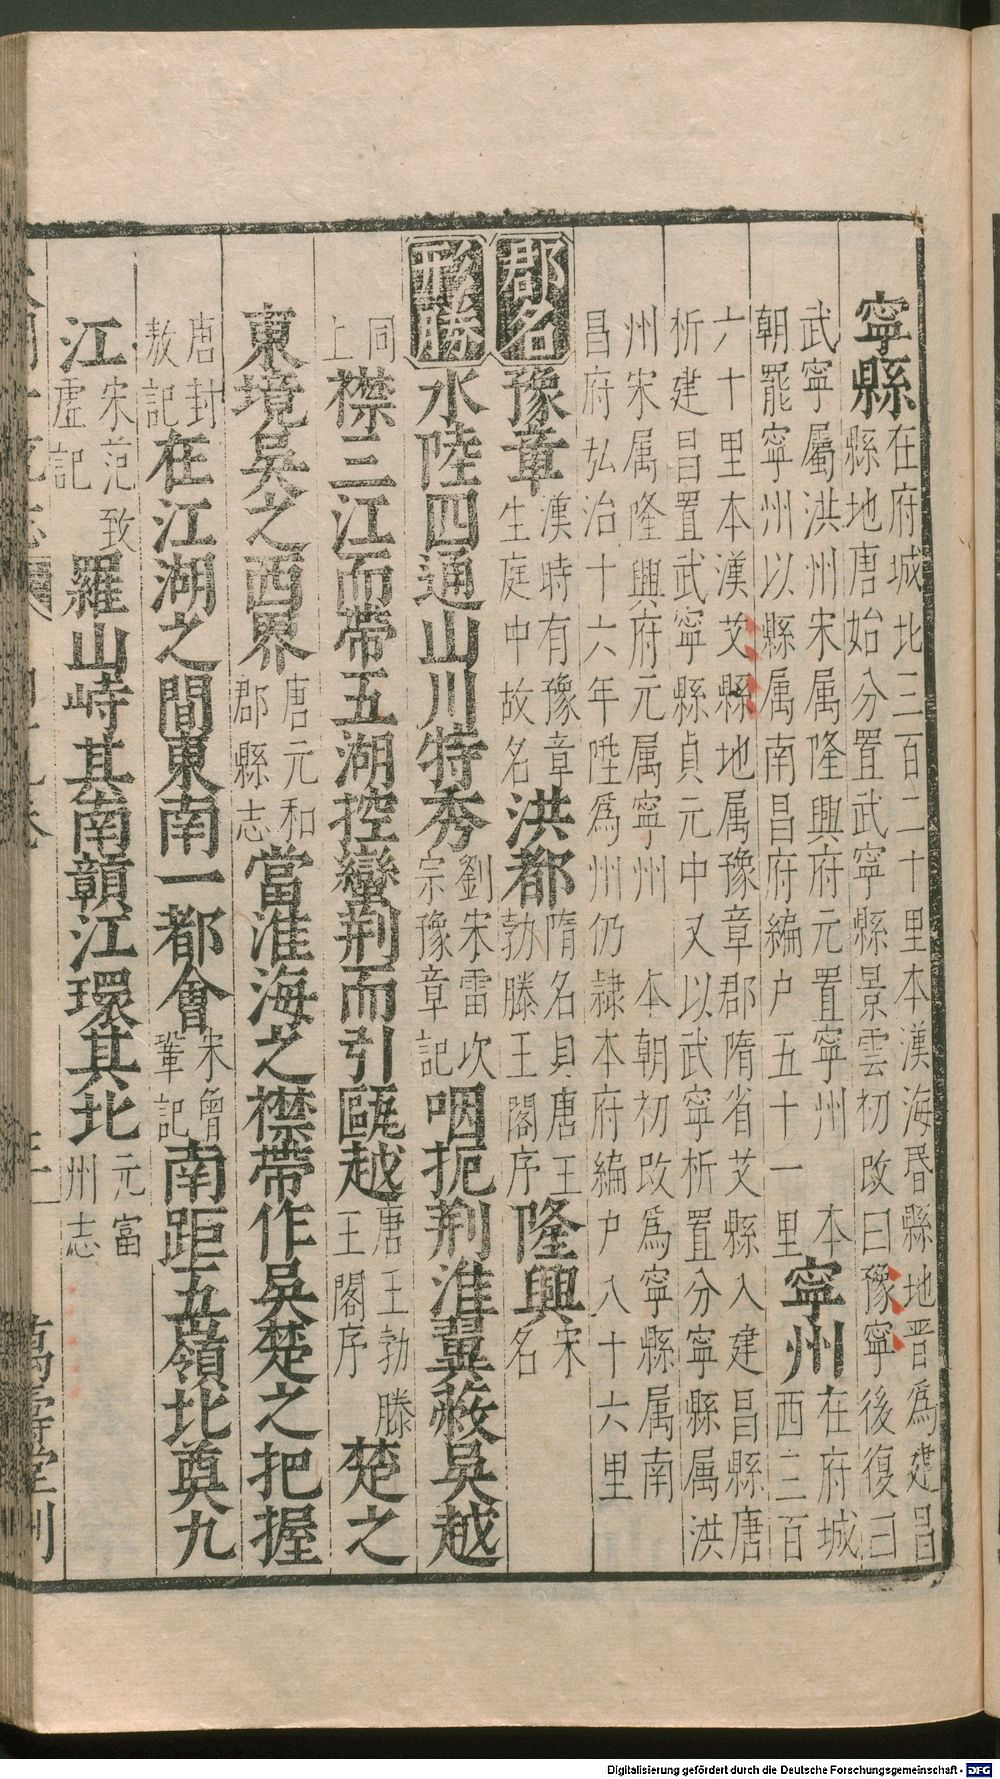 寧縣在府城北三百二十里本漢海昬縣地晋為建昌
縣地唐始分置武寧縣景雲初改曰豫寧後復曰
武寧屬洪州宋属隆興府元置寧州　本
朝罷寧州以縣属南昌府編户五十一里寧州在府城
西三百
六十里本漢艾縣地属豫章郡隋省艾縣入建昌縣唐
析建昌置武寧縣貞元中又以武寧析置分寧縣属洪
州宋属隆興府元属寧州　本朝初改為寧縣属南
昌府弘治十六年陞為州仍隸本府編户八十六里
郡名豫章漢時有豫章
生庭中故名洪都隋名見唐王
勃滕王閣序隆興宋
名
形勝水陸四通山川特秀劉宋雷次
宗豫章記咽扼荆淮翼蔽吳越
同
上襟三江而帶五湖控蠻荆而引甌越唐王勃滕
王閣序楚之
東境吳之西界唐元和
郡縣志當淮海之襟帶作吳楚之把握
唐封
敖記在江湖之間東南一都會宋曾
鞏記南距五嶺北奠九
江宋范致
虚記羅山峙其南贛江環其北元富
州志
萬壽堂刊
Digitalisierung gefördert durch die Deutsche Forschungsgemeinschaft - DFG